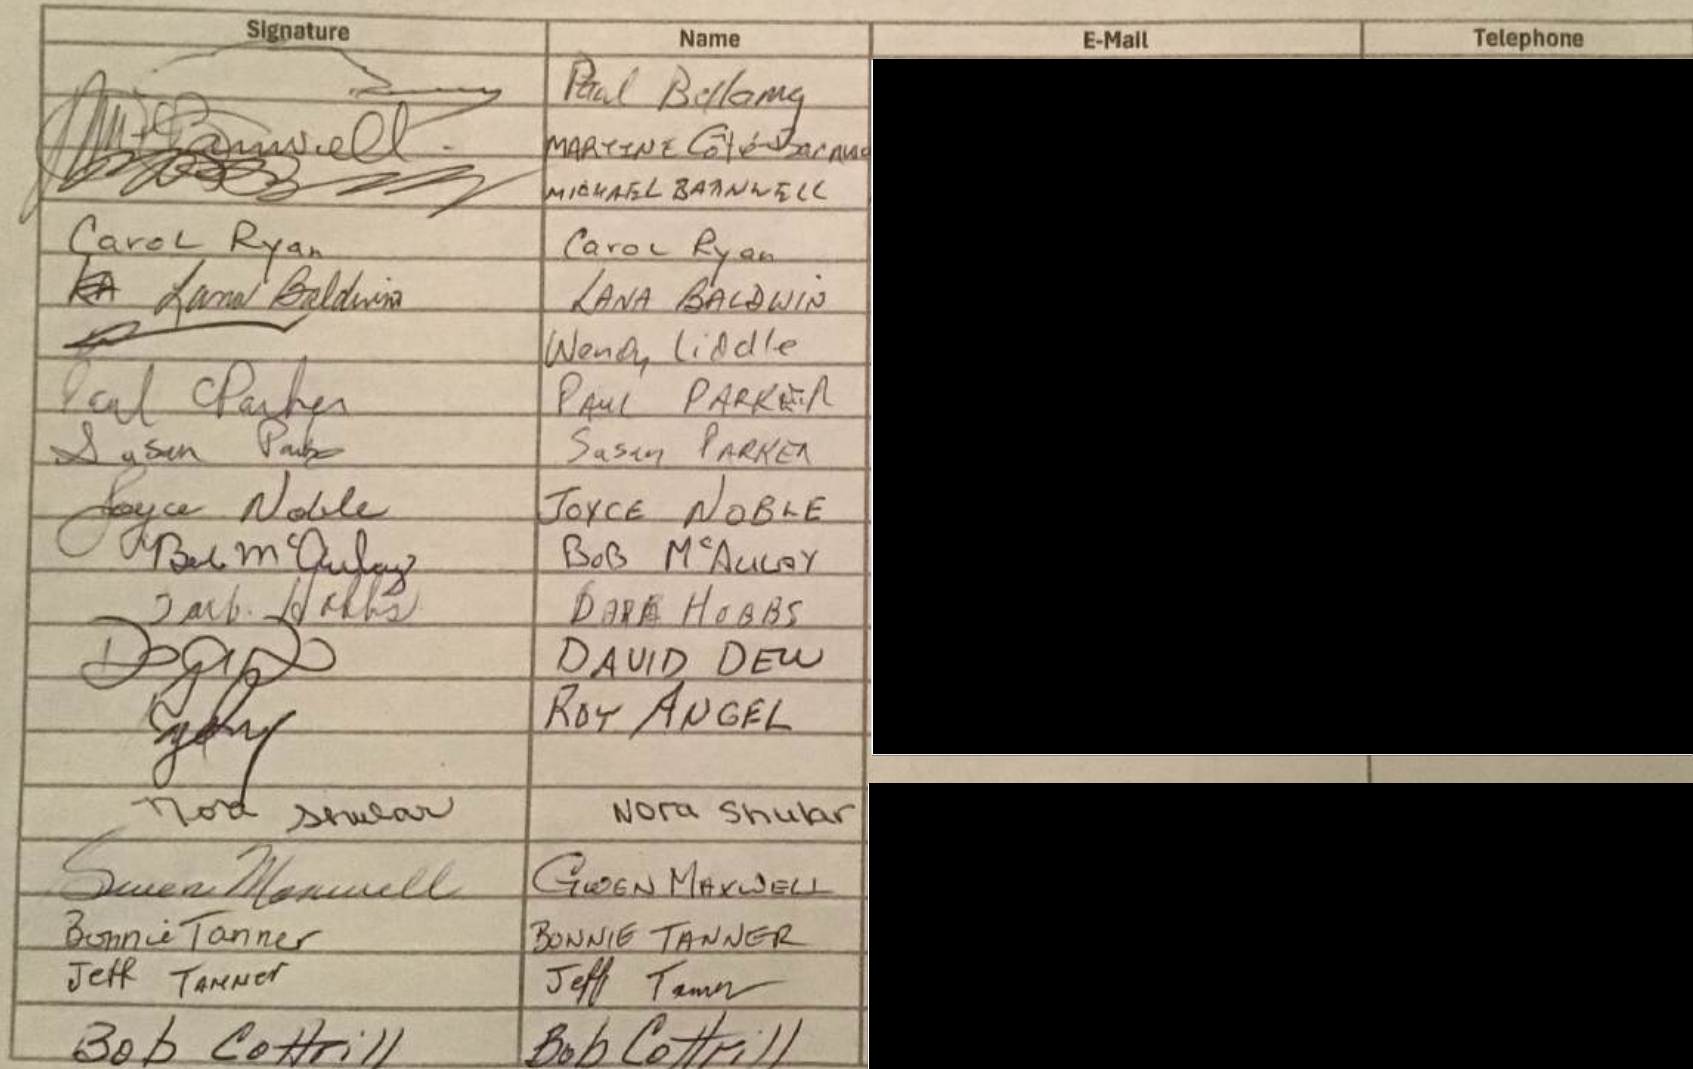 Signature Name E-Mail Telephone
Paul Bellamy
Barnwell MARTINE Côté-
MICHAEL BARNWELL
Carol Ryan Carol Ryan
Lana Baldwin LANA BALDWIN
Wendy Liddle
Paul Parker PAUL PARKER
Susan Susan PARKER
Joyce Noble JOYCE NOBLE
Bob McAulay BOB McAULAY
Hobbs HOBBS
DAVID DEW
ROY ANGEL
Nora Shular Nora Shular
Gwen Maxwell GWEN MAXWELL
Bonnie Tanner BONNIE TANNER
Jeff TANNer Jeff Tanner
Bob Cottrill Bob Cottrill